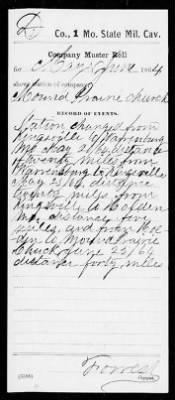 D Co., 1 Mo. State Mil. Cav.
Company Muster Roll
for May & June 1864
shows station of company
Mound Prairie Church
RECORD OF EVENTS.
Station changed from
to Warrensburg
Mo. May
twenty miles from
Warrensburg to Kingsville
May 25/64, distance
miles from
Kingsville to Holden
Mo. distance five
miles, and from Hol-
den to Mound Prairie
Church June 25/64
distance forty miles
Forrest
Copyist.